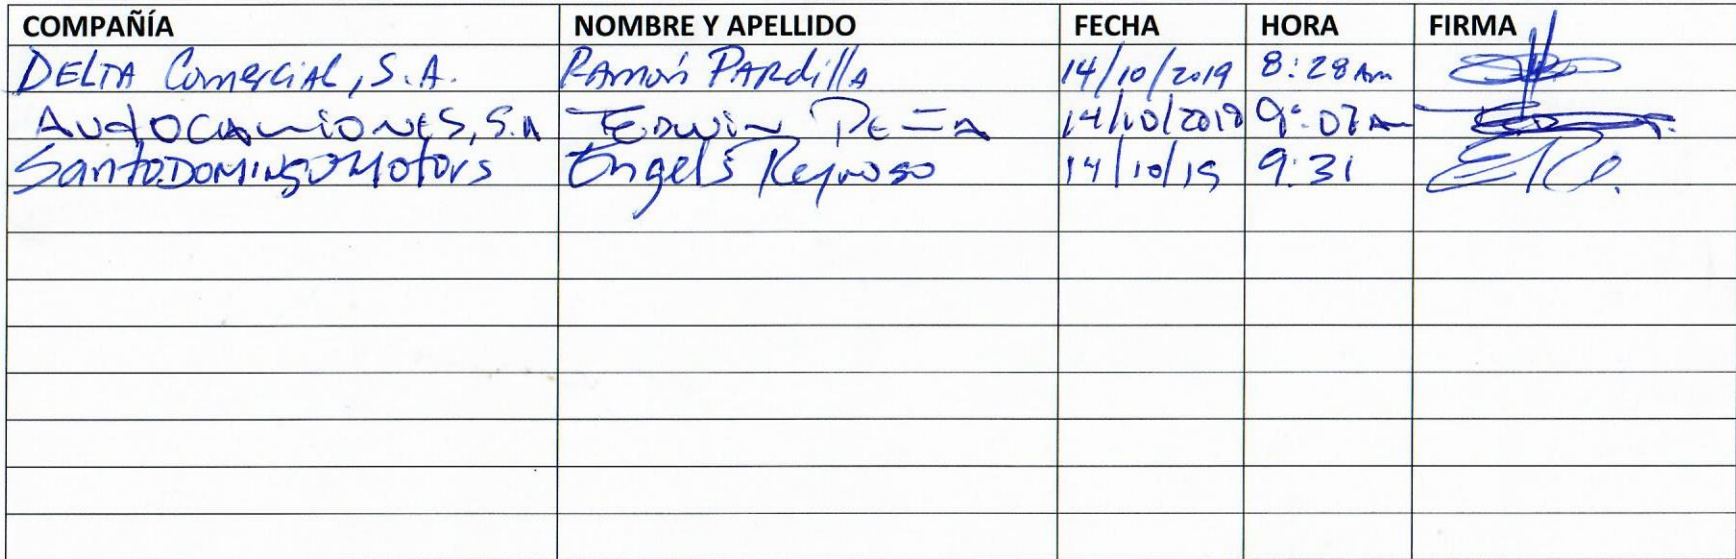 COMPAÑÍA NOMBRE Y APELLIDO FECHA HORA FIRMA
DELTA Comercial, S.A. Ramón PARdillA 14/10/2019 8:28 Am
AUTOCAMIONES, S.A EDWIN PEÑA 14/10/2019 9:07 Am
Santo DOMINGO Motors Engels Reynoso 14/10/19 9:31